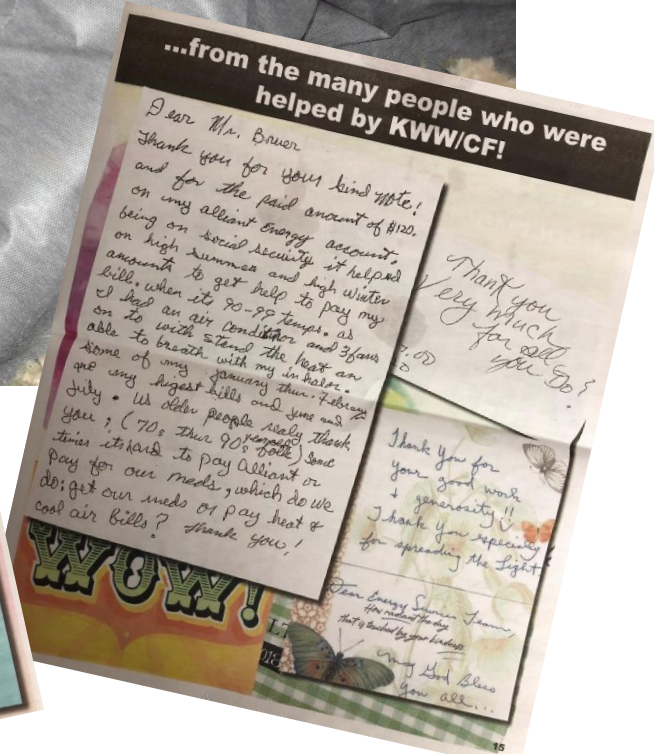 ...from the many people who were
helped by KWW/CF!
Dear Mr. Bruer
Thank you for your kind note!
and for the paid amount of $120.
on my alliant Energy account.
being on social security it helped
on high summer and high winter
amounts to get help to pay my
bill. when its 90-99 temps. as
I had an air conditior and 3 fans
on to with stand the heat an
able to breath with my inhalor.
some of my january thur: Febuary
are my higest bills and june and
July. us older people realy thank
you; (70s thur 90s folk) some
times its hard to pay Alliant or
pay for our meds, which do we
do; get our meds or pay heat &
cool air bills? Thank you!
Thank you
Very much
for all
you do!
.00
0
Thank You for
your good work
+ generosity!!
Thank you especially
for spreading the Light.
Dear Energy Sources Team,
How radiant the day
that is touched by your kindness
May God Bless
you all...
WOW!
15